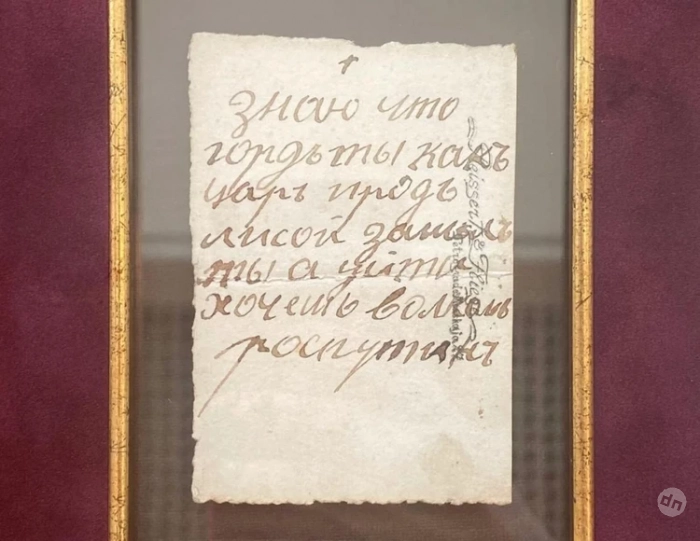 †
знаю что
гордъ ты какъ
царь иродъ
лисой зашелъ
ты а уйти
хочешь волкомъ
роспутинъ
dn